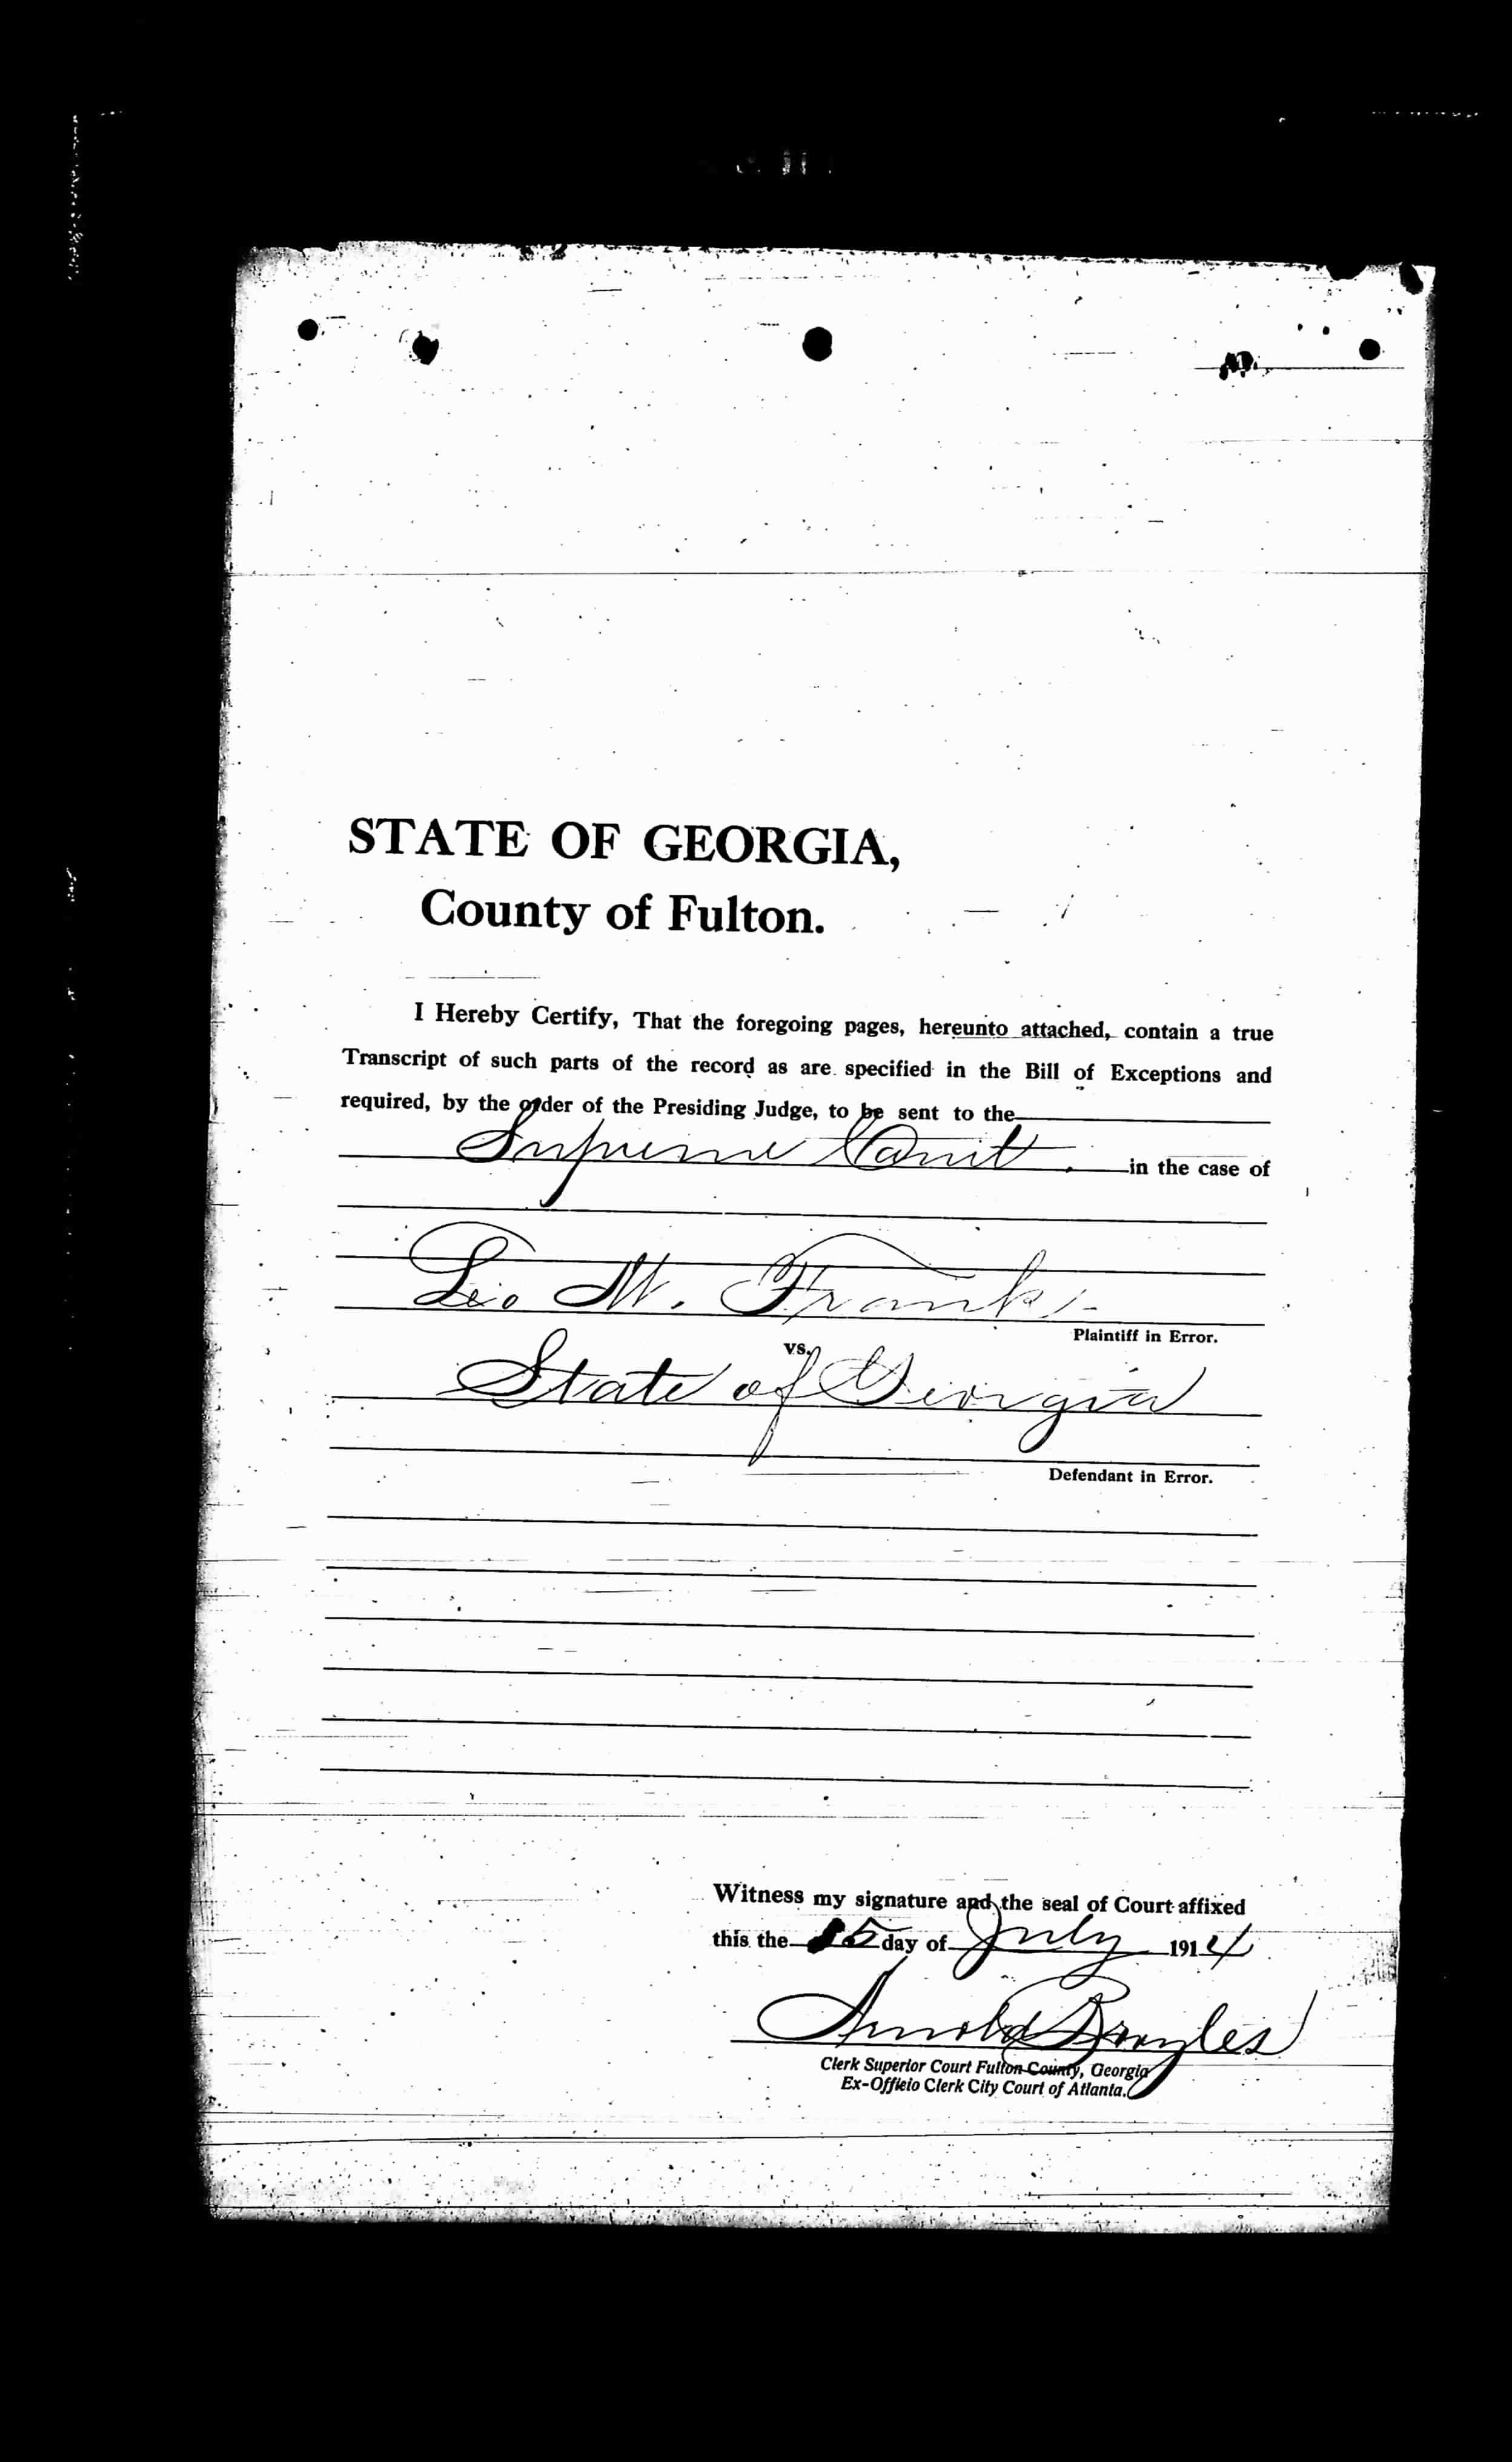 STATE OF GEORGIA,
County of Fulton.
I Hereby Certify, That the foregoing pages, hereunto attached, contain a true
Transcript of such parts of the record as are specified in the Bill of Exceptions and
required, by the order of the Presiding Judge, to be sent to the
Supreme Court. in the case of
Leo M. Frank
Plaintiff in Error.
vs.
State of Georgia
Defendant in Error.
Witness my signature and the seal of Court affixed
this the 15 day of July 1914
Arnold Broyles
Clerk Superior Court Fulton County, Georgia
Ex-Officio Clerk City Court of Atlanta.